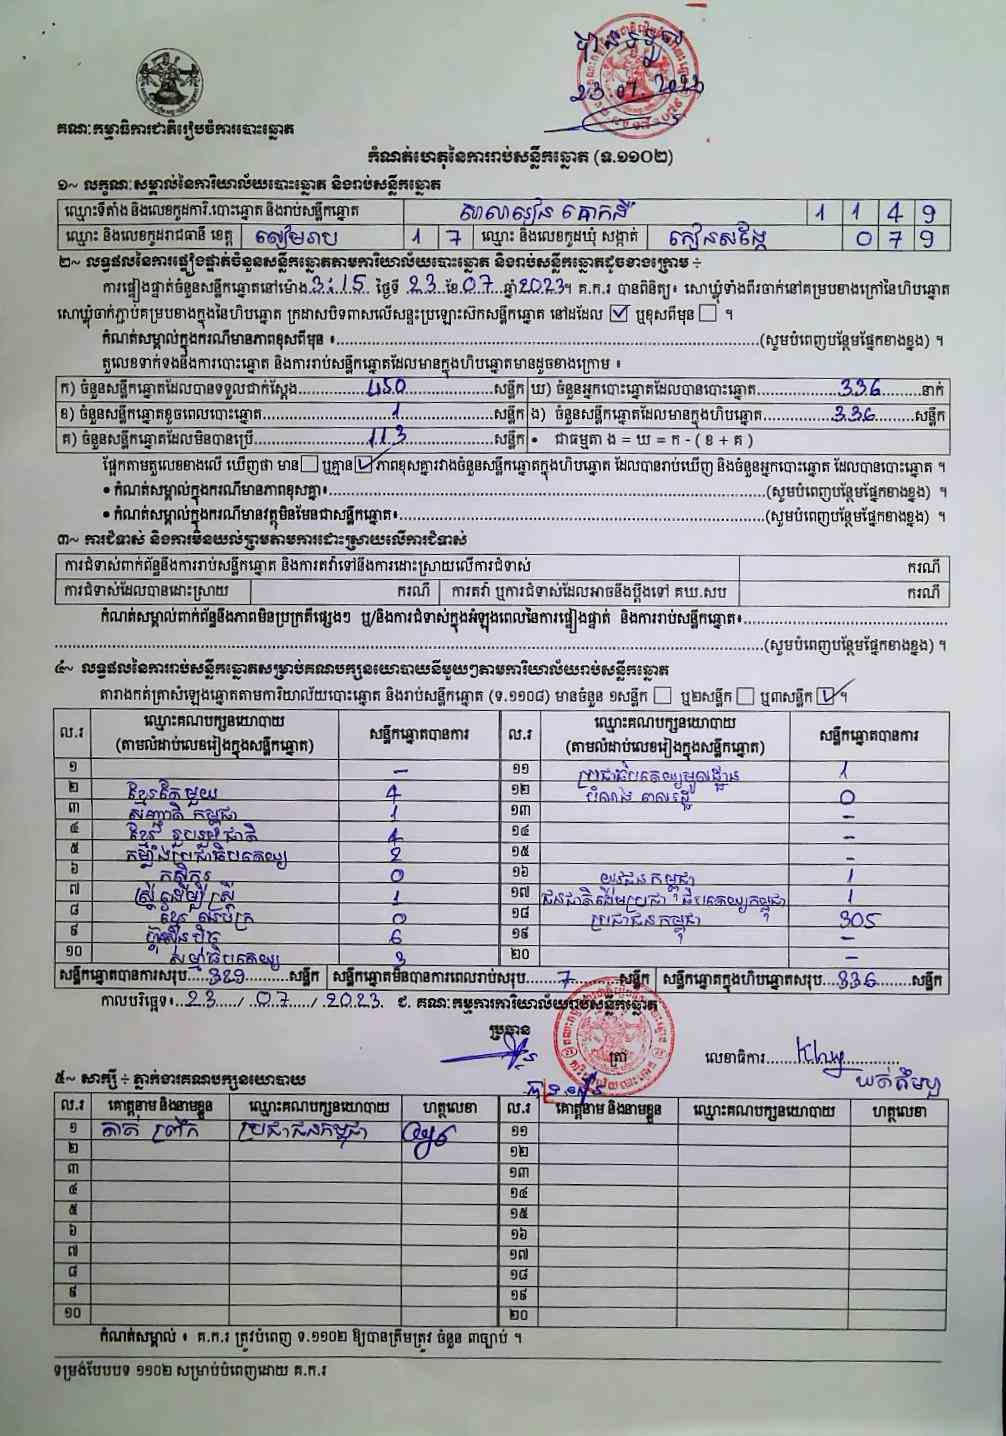 23.07.2023
គណៈកម្មាធិការជាតិរៀបចំការបោះឆ្នោត
កំណត់ហេតុនៃការរាប់សន្លឹកឆ្នោត (ទ.១១០២)
១~ លក្ខណៈសម្គាល់នៃការិយាល័យបោះឆ្នោត និងរាប់សន្លឹកឆ្នោត
ឈ្មោះទីតាំង និងលេខកូដការិ.បោះឆ្នោត និងរាប់សន្លឹកឆ្នោត សាលារៀន គោកដី 1 1 4 9
ឈ្មោះ និងលេខកូដរាជធានី ខេត្ត សៀមរាប 1 7 ឈ្មោះ និងលេខកូដឃុំ សង្កាត់ កៀនសង្កែ 0 7 9
២~ លទ្ធផលនៃការផ្ទៀងផ្ទាត់ចំនួនសន្លឹកឆ្នោតតាមការិយាល័យបោះឆ្នោត និងរាប់សន្លឹកឆ្នោតដូចខាងក្រោម ÷
ការផ្ទៀងផ្ទាត់ចំនួនសន្លឹកឆ្នោតនៅម៉ោង 3:15 ថ្ងៃទី 23 ខែ 07 ឆ្នាំ 2023។ គ.ក.រ បានពិនិត្យ៖ សោឃ្លុំទាំងពីរចាក់នៅគម្របខាងក្រៅនៃហិបឆ្នោត
សោឃ្លុំចាក់ភ្ជាប់គម្របខាងក្នុងនៃហិបឆ្នោត ក្រដាសបិទពាសលើសន្ទះប្រឡោះស៊កសន្លឹកឆ្នោត នៅដដែល ☑ ឬខុសពីមុន ☐ ។
កំណត់សម្គាល់ក្នុងករណីមានភាពខុសពីមុន ៖ (សូមបំពេញបន្ថែមផ្នែកខាងខ្នង) ។
តួលេខទាក់ទងនឹងការបោះឆ្នោត និងការរាប់សន្លឹកឆ្នោតដែលមានក្នុងហិបឆ្នោតមានដូចខាងក្រោម ៖
ក) ចំនួនសន្លឹកឆ្នោតដែលបានទទួលជាក់ស្តែង 450 សន្លឹក ឃ) ចំនួនអ្នកបោះឆ្នោតដែលបានបោះឆ្នោត 336 នាក់
ខ) ចំនួនសន្លឹកឆ្នោតខូចពេលបោះឆ្នោត 1 សន្លឹក ង) ចំនួនសន្លឹកឆ្នោតដែលមានក្នុងហិបឆ្នោត 336 សន្លឹក
គ) ចំនួនសន្លឹកឆ្នោតដែលមិនបានប្រើ 113 សន្លឹក • ជាធម្មតា ង = ឃ = ក - ( ខ + គ )
ផ្អែកតាមតួលេខខាងលើ ឃើញថា មាន ☐ ឬគ្មាន ☑ ភាពខុសគ្នារវាងចំនួនសន្លឹកឆ្នោតក្នុងហិបឆ្នោត ដែលបានរាប់ឃើញ និងចំនួនអ្នកបោះឆ្នោត ដែលបានបោះឆ្នោត ។
• កំណត់សម្គាល់ក្នុងករណីមានភាពខុសគ្នា៖ (សូមបំពេញបន្ថែមផ្នែកខាងខ្នង) ។
• កំណត់សម្គាល់ក្នុងករណីមានវត្ថុមិនមែនជាសន្លឹកឆ្នោត៖ (សូមបំពេញបន្ថែមផ្នែកខាងខ្នង) ។
៣~ ការជំទាស់ និងការមិនយល់ព្រមតាមការដោះស្រាយលើការជំទាស់
ការជំទាស់ពាក់ព័ន្ធនឹងការរាប់សន្លឹកឆ្នោត និងការតវ៉ាទៅនឹងការដោះស្រាយលើការជំទាស់ ករណី
ការជំទាស់ដែលបានដោះស្រាយ ករណី ការតវ៉ា ឬការជំទាស់ដែលអាចនឹងប្តឹងទៅ គឃ.សប ករណី
កំណត់សម្គាល់ពាក់ព័ន្ធនឹងភាពមិនប្រក្រតីផ្សេងៗ ឬ/និងការជំទាស់ក្នុងអំឡុងពេលនៃការផ្ទៀងផ្ទាត់ និងការរាប់សន្លឹកឆ្នោត៖
(សូមបំពេញបន្ថែមផ្នែកខាងខ្នង) ។
៤~ លទ្ធផលនៃការរាប់សន្លឹកឆ្នោតសម្រាប់គណបក្សនយោបាយនីមួយៗតាមការិយាល័យរាប់សន្លឹកឆ្នោត
តារាងកត់ត្រាសំឡេងឆ្នោតតាមការិយាល័យបោះឆ្នោត និងរាប់សន្លឹកឆ្នោត (ទ.១១០៨) មានចំនួន ១សន្លឹក ☐ ឬ២សន្លឹក ☐ ឬ៣សន្លឹក ☑ ។
ល.រ ឈ្មោះគណបក្សនយោបាយ (តាមលំដាប់លេខរៀងក្នុងសន្លឹកឆ្នោត) សន្លឹកឆ្នោតបានការ ល.រ ឈ្មោះគណបក្សនយោបាយ (តាមលំដាប់លេខរៀងក្នុងសន្លឹកឆ្នោត) សន្លឹកឆ្នោតបានការ
១ – ១១ ប្រជាធិបតេយ្យមូលដ្ឋាន 1
២ ខ្មែរតែមួយ 4 ១២ 0
៣ សញ្ជាតិ កម្ពុជា 1 ១៣ –
៤ ខ្មែរ រួបរួមជាតិ 4 ១៤ –
៥ កម្លាំងប្រជាធិបតេយ្យ 2 ១៥ –
៦ កសិករ 0 ១៦ យុវជនកម្ពុជា 1
៧ ស្រ្តីដើម្បីស្រ្តី 1 ១៧ ជនជាតិដើមប្រជាធិបតេយ្យកម្ពុជា 1
៨ ខ្មែរ ឈប់ក្រ 0 ១៨ ប្រជាជនកម្ពុជា 305
៩ ហ៊្វុនស៊ិនប៉ិច 6 ១៩ –
១០ សំបុកឃ្មុំ 3 ២០ –
សន្លឹកឆ្នោតបានការសរុប 329 សន្លឹក សន្លឹកឆ្នោតមិនបានការពេលរាប់សរុប 7 សន្លឹក សន្លឹកឆ្នោតក្នុងហិបឆ្នោតសរុប 336 សន្លឹក
កាលបរិច្ឆេទ៖ 23 / 07 / 2023 ជ. គណៈកម្មការការិយាល័យរាប់សន្លឹកឆ្នោត
ប្រធាន ត្រា លេខាធិការ
៥~ សាក្សី ÷ ភ្នាក់ងារគណបក្សនយោបាយ
ល.រ គោត្តនាម និងនាមខ្លួន ឈ្មោះគណបក្សនយោបាយ ហត្ថលេខា ល.រ គោត្តនាម និងនាមខ្លួន ឈ្មោះគណបក្សនយោបាយ ហត្ថលេខា
១ ប្រជាជនកម្ពុជា ១១
២ ១២
៣ ១៣
៤ ១៤
៥ ១៥
៦ ១៦
៧ ១៧
៨ ១៨
៩ ១៩
១០ ២០
កំណត់សម្គាល់ ៖ គ.ក.រ ត្រូវបំពេញ ទ.១១០២ ឱ្យបានត្រឹមត្រូវ ចំនួន ៣ច្បាប់ ។
ទម្រង់បែបបទ ១១០២ សម្រាប់បំពេញដោយ គ.ក.រ